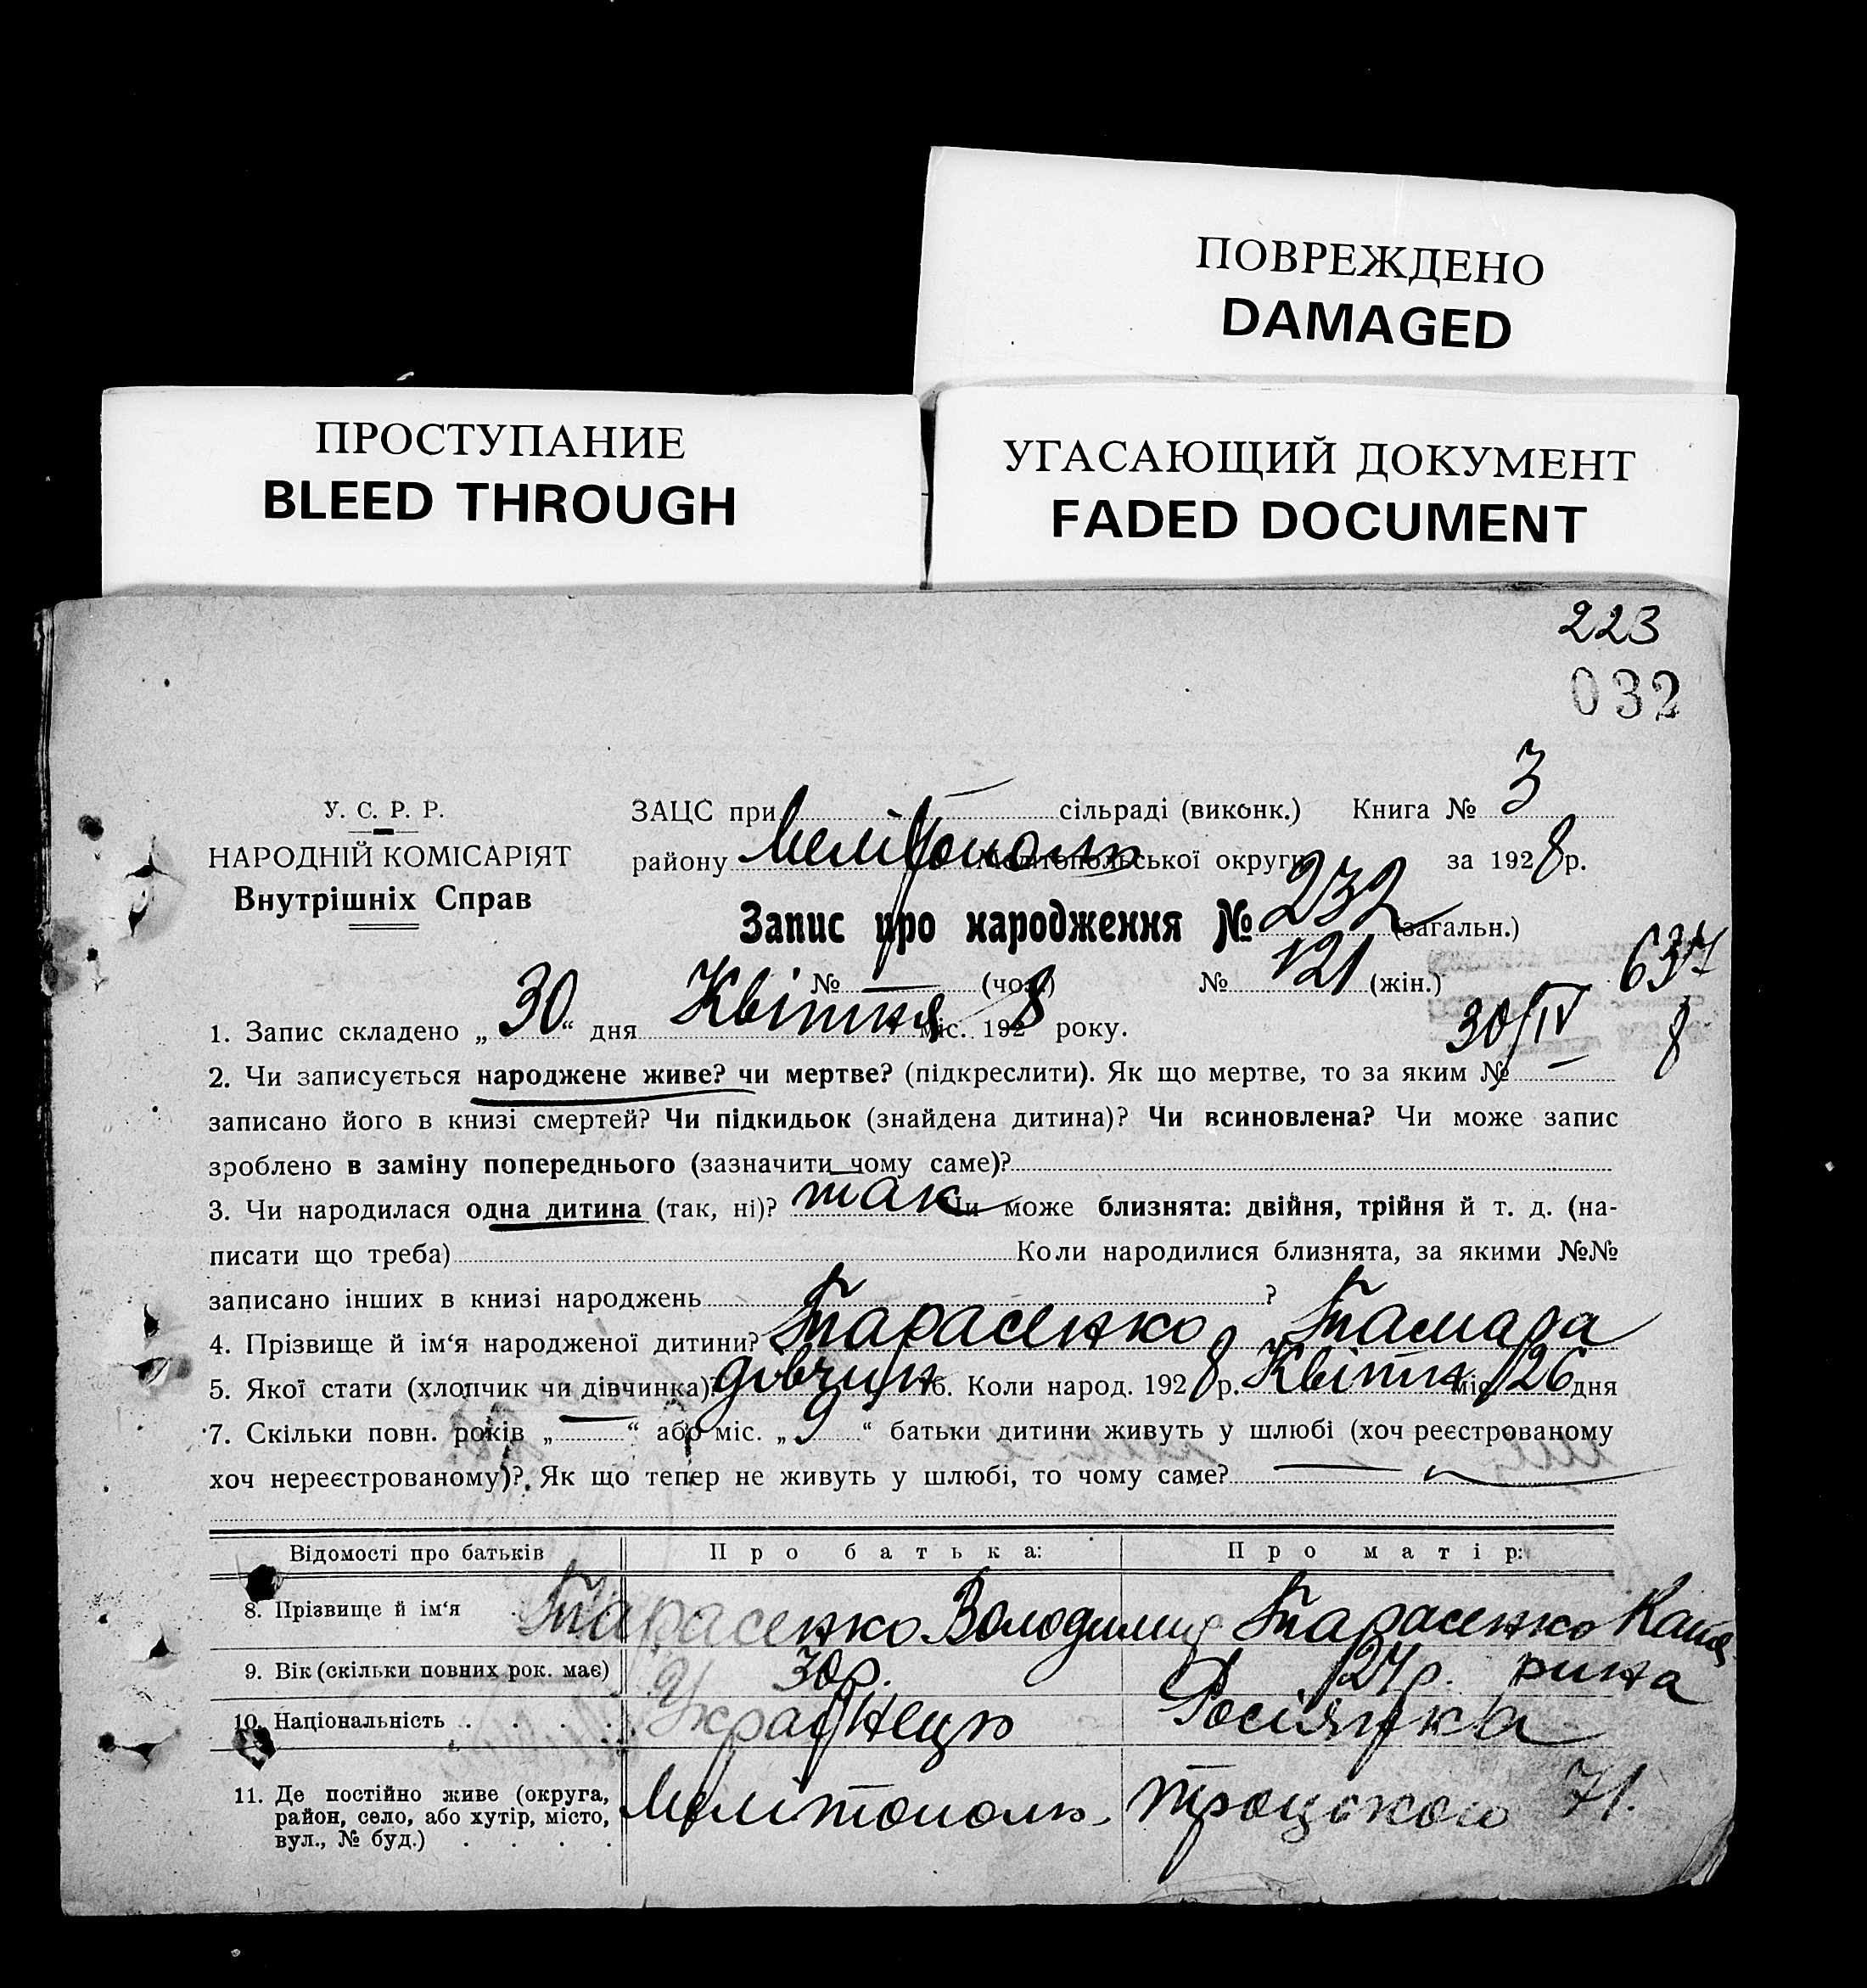 ПОВРЕЖДЕНО
DAMAGED
ПРОСТУПАНИЕ
BLEED THROUGH
УГАСАЮЩИЙ ДОКУМЕНТ
FADED DOCUMENT
223
032
У. С. Р. Р.
НАРОДНІЙ КОМІСАРІЯТ
Внутрішніх Справ
ЗАЦС при сільраді (виконк.) Книга № 3
району Мелітополь Мелітопольської округи за 1928 р.
Запис про народження № 232 (загальн.)
№ — (чол.) № 121 (жін.)
30/IV 8
1. Запис складено „30“ дня Квітня міс. 1928 року.
2. Чи записується народжене живе? чи мертве? (підкреслити). Як що мертве, то за яким №
записано його в книзі смертей? Чи підкидьок (знайдена дитина)? Чи всиновлена? Чи може запис
зроблено в заміну попереднього (зазначити чому саме)?
3. Чи народилася одна дитина (так, ні)? так Чи може близнята: двійня, трійня й т. д. (на-
писати що треба) Коли народилися близнята, за якими №№
записано інших в книзі народжень ?
4. Прізвище й ім‘я народженої дитини? Тарасенко Тамара
5. Якої стати (хлопчик чи дівчинка)? дівчин 6. Коли народ. 1928 р. Квітня міс. 26 дня
7. Скільки повн. років „—“ або міс. „9“ батьки дитини живуть у шлюбі (хоч реєстрованому
хоч нереєстрованому)? Як що тепер не живуть у шлюбі, то чому саме? —
Відомості про батьків Про батька: Про матір:
8. Прізвище й ім‘я . Тарасенко Володимир Тарасенко Кате
рина
9. Вік (скільки повних рок. має) 30 р. 24 р.
10. Національність . . . . . Українець Росіянка
11. Де постійно живе (округа,
район, село, або хутір, місто,
вул., № буд.) . . . .
Мелітополь, Троцького 71.